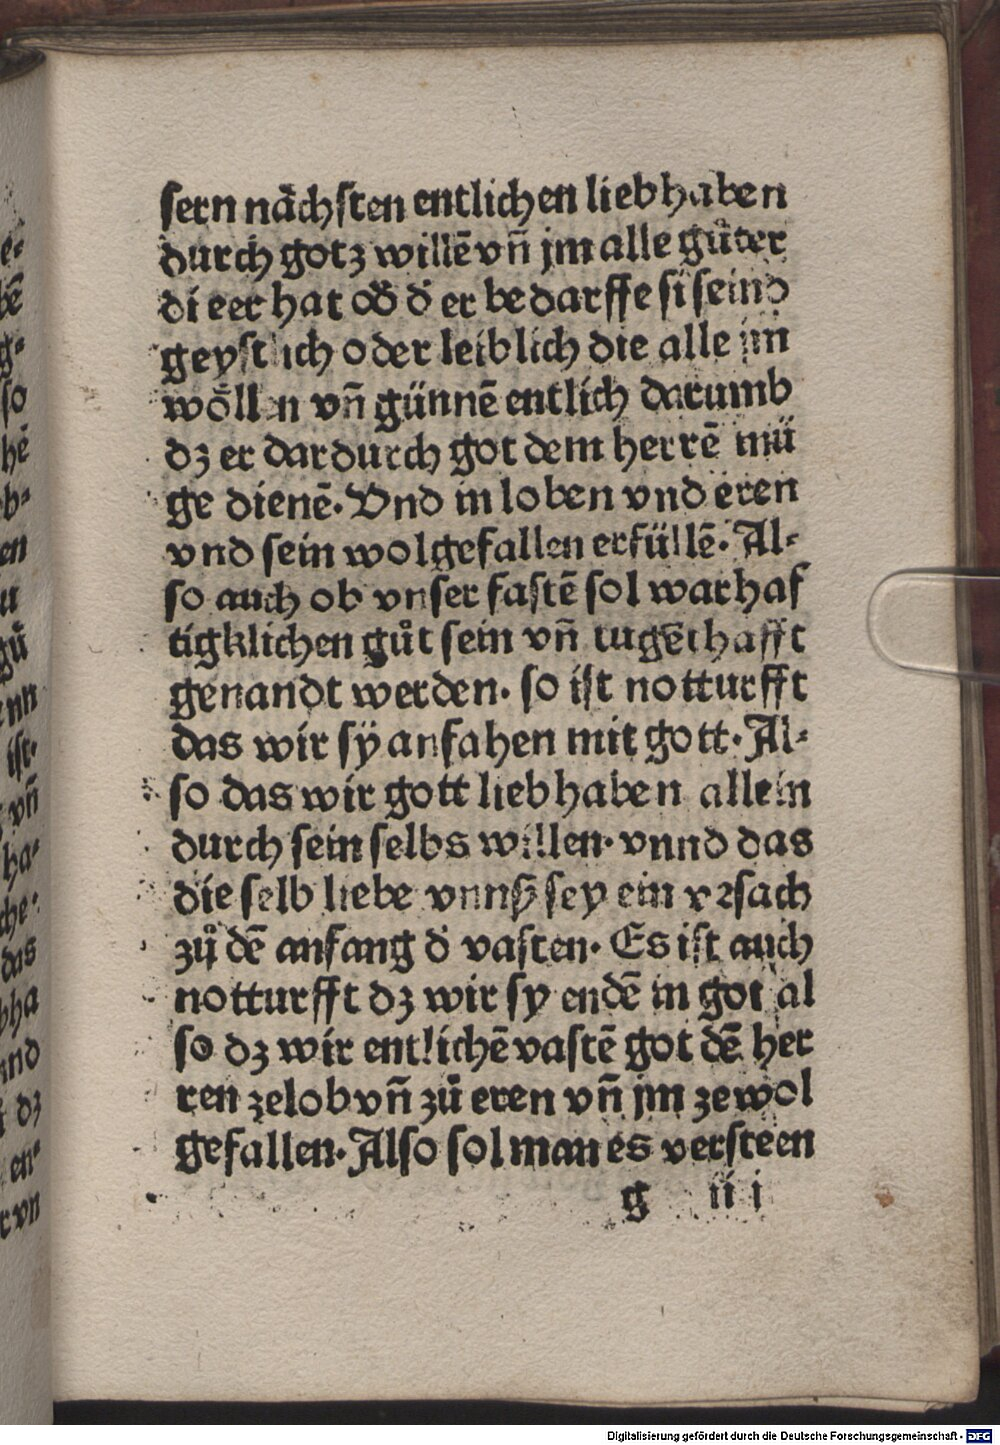 sern nächsten entlichen liebhaben
durch gotz willē vñ jm alle gůter
di eer hat od̾ d̾ er bedarffe si seind
geystlich oder leiblich die alle im
wöllen vñ günnē entlich darumb
dz er dardurch got dem herrē mü
ge dienē. Vnd in loben vnd eren
vnd sein wolgefallen erfüllē. Al-
so auch ob vnser fastē sol warhaf
tigklichen gůt sein vñ tugēthafft
genandt werden. so ist notturfft
das wir sÿ anfahen mit gott. Al-
so das wir gott liebhaben allein
durch sein selbs willen. vnnd das
die selb liebe vnnß sey ein vrsach
zů dē anfang d̾ vasten. Es ist auch
notturfft dz wir sy endē in got al
so dz wir entlichē vastē got dē her
ren zelob vñ zů eren vñ jm zewol
gefallen. Also sol man es versteen
g iii
Digitalisierung gefördert durch die Deutsche Forschungsgemeinschaft - DFG